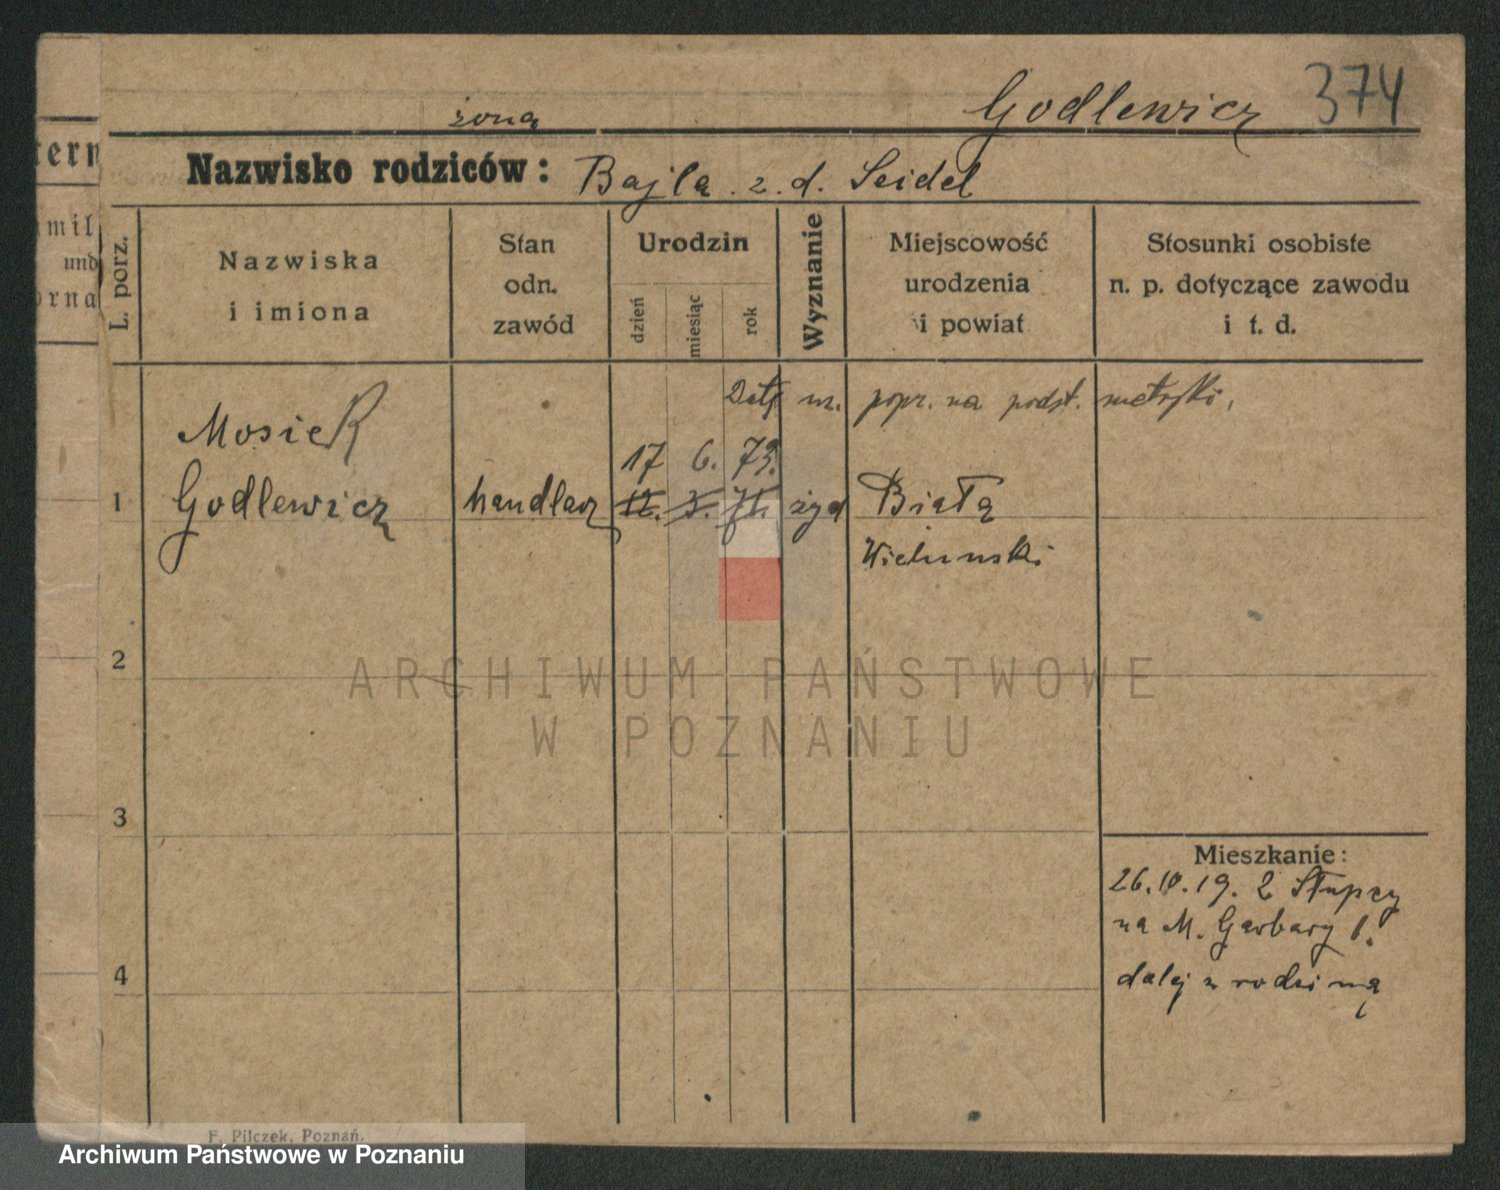 żona
Godlewicz 374
Nazwisko rodziców: Bajla z. d. Seidel
tern
mil
und
orna
L. porz.
Nazwiska
i imiona
Stan
odn.
zawód
Urodzin
dzień
miesiąc
rok
Wyznanie
Miejscowość
urodzenia
i powiat
Stosunki osobiste
n. p. dotyczące zawodu
i t. d.
Datę ur. popr. na podst. metryki.
Mosiek
17 6. 73.
1 Godlewicz handlarz 12. 3. 71. żyd Biała
Wieluński
2
ARCHIWUM PAŃSTWOWE
W POZNANIU
3
Mieszkanie:
26.10.19. z Słupcy
na M. Garbary 1.
4
dalej z rodziną
F. Pilczek, Poznań.
Archiwum Państwowe w Poznaniu